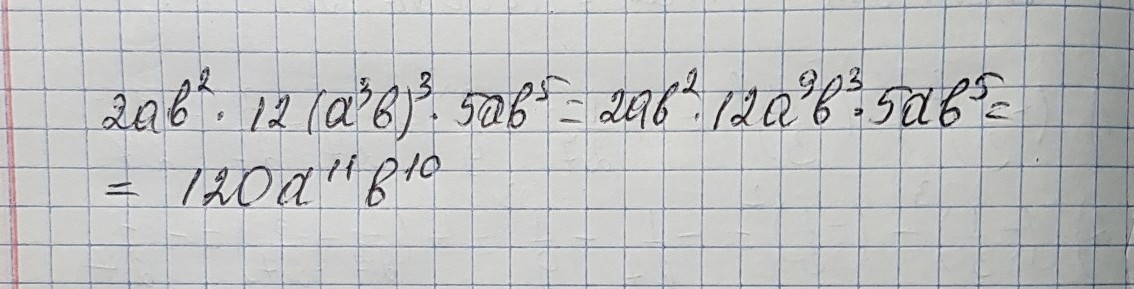 2ab² · 12(a³b)³ · 5ab⁵ = 2ab² · 12a⁹b³ · 5ab⁵ =
= 120a¹¹b¹⁰